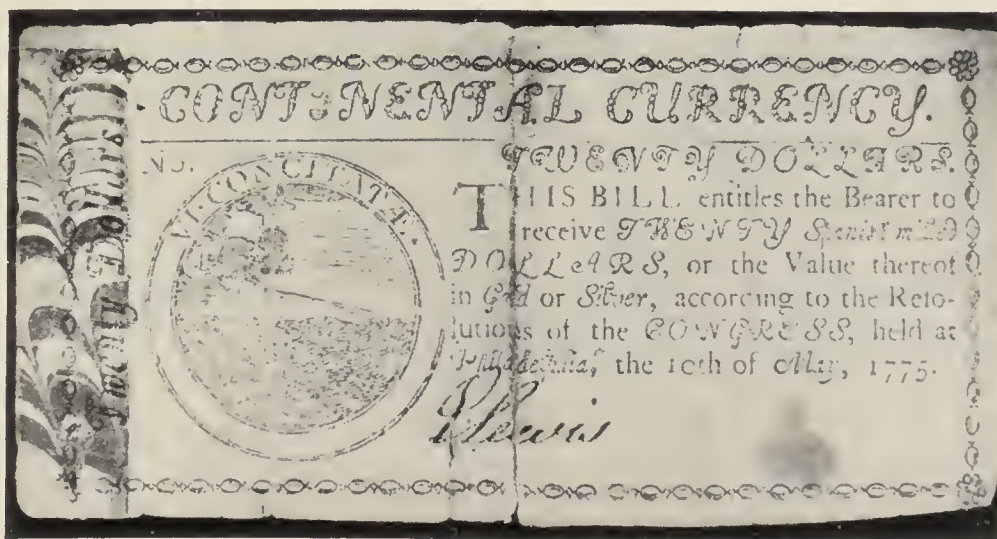 CONTINENTAL CURRENCY.
Twenty Dollars
No.
VI CONCITATÆ.
TWENTY DOLLARS.
THIS BILL entitles the Bearer to
receive TWENTY Spanish mill'd
DOLLARS, or the Value thereof
in Gold or Silver, according to the Reso-
lutions of the CONGRESS, held at
Philadelphia, the 10th of May, 1775.
Lewis